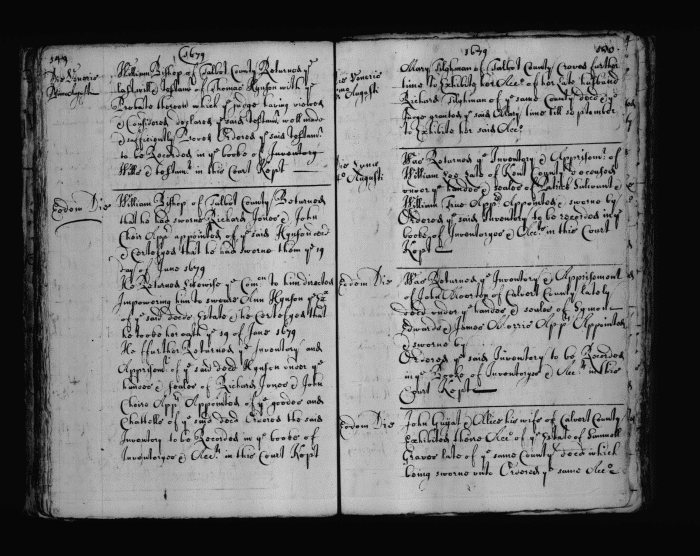 149
1679
Die Veneris
Primo Augusti
William Bishop of Talbot County Returned ye
last will & testamt of Thomas Hynson with ye
Probate thereon which ye Judge having viewed
& Considered declared ye said testamt well made
& sufficiently Proved Ordered ye said testamt
to be Recorded in ye booke of Inventory
Wills & testamts in this Court Kept
Eodem Die
William Bishop of Talbot County Returned
that he had sworne Richard Jones & John
Chaire Apprs appointed of ye said Hynson
& Certifyed that he had sworne them ye 19
day of June 1679
He Returned likewise ye Comn to him directed
Impowering him to sweare Ann Hynson
of ye said deceds Estate & he Certifyed that
he tooke her oath ye 19 of June 1679
He ffurther Returned ye Inventory and
Apprismt of ye said deced Hynson under ye
handes & seales of Richard Jones & John
Chaire Apprs Appointed of ye goodes and
Chattells of ye said deced Ordered the said
Inventory to be Recorded in ye booke of
Inventoryes & Accts in this Court Kept
1679
150
Die Veneris
Augusti
Mary Tilghman of Talbot County Craves further
time to Exhibite her Acct of her late husband
Richard Tilghman of ye same County deced ye
Judge granted ye said Mary time till
to Exhibite her said Acct
Die
Augusti
Was Returned ye Inventory & Apprismt of
William late of Kent County deceased
under ye handes & seales of Patrick &
William True Apprs Appointed & sworne by
Ordered ye said Inventory to be recorded in ye
booke of Inventoryes & Accts in this Court
Kept
Eodem Die
Was Returned ye Inventory & Apprisement
of John of Calvert County lately
deced under ye handes & seales of
Edwards & James Morris Apprs Appointed
& sworne by
Ordered ye said Inventory to be Recorded
in ye Booke of Inventoryes & Accts in this
Court Kept
Eodem Die
John & Alice his wife of Calvert County
Exhibited there Acct of ye Estate of
Graves late of ye same County deced which
being sworne unto Ordered ye same Acct